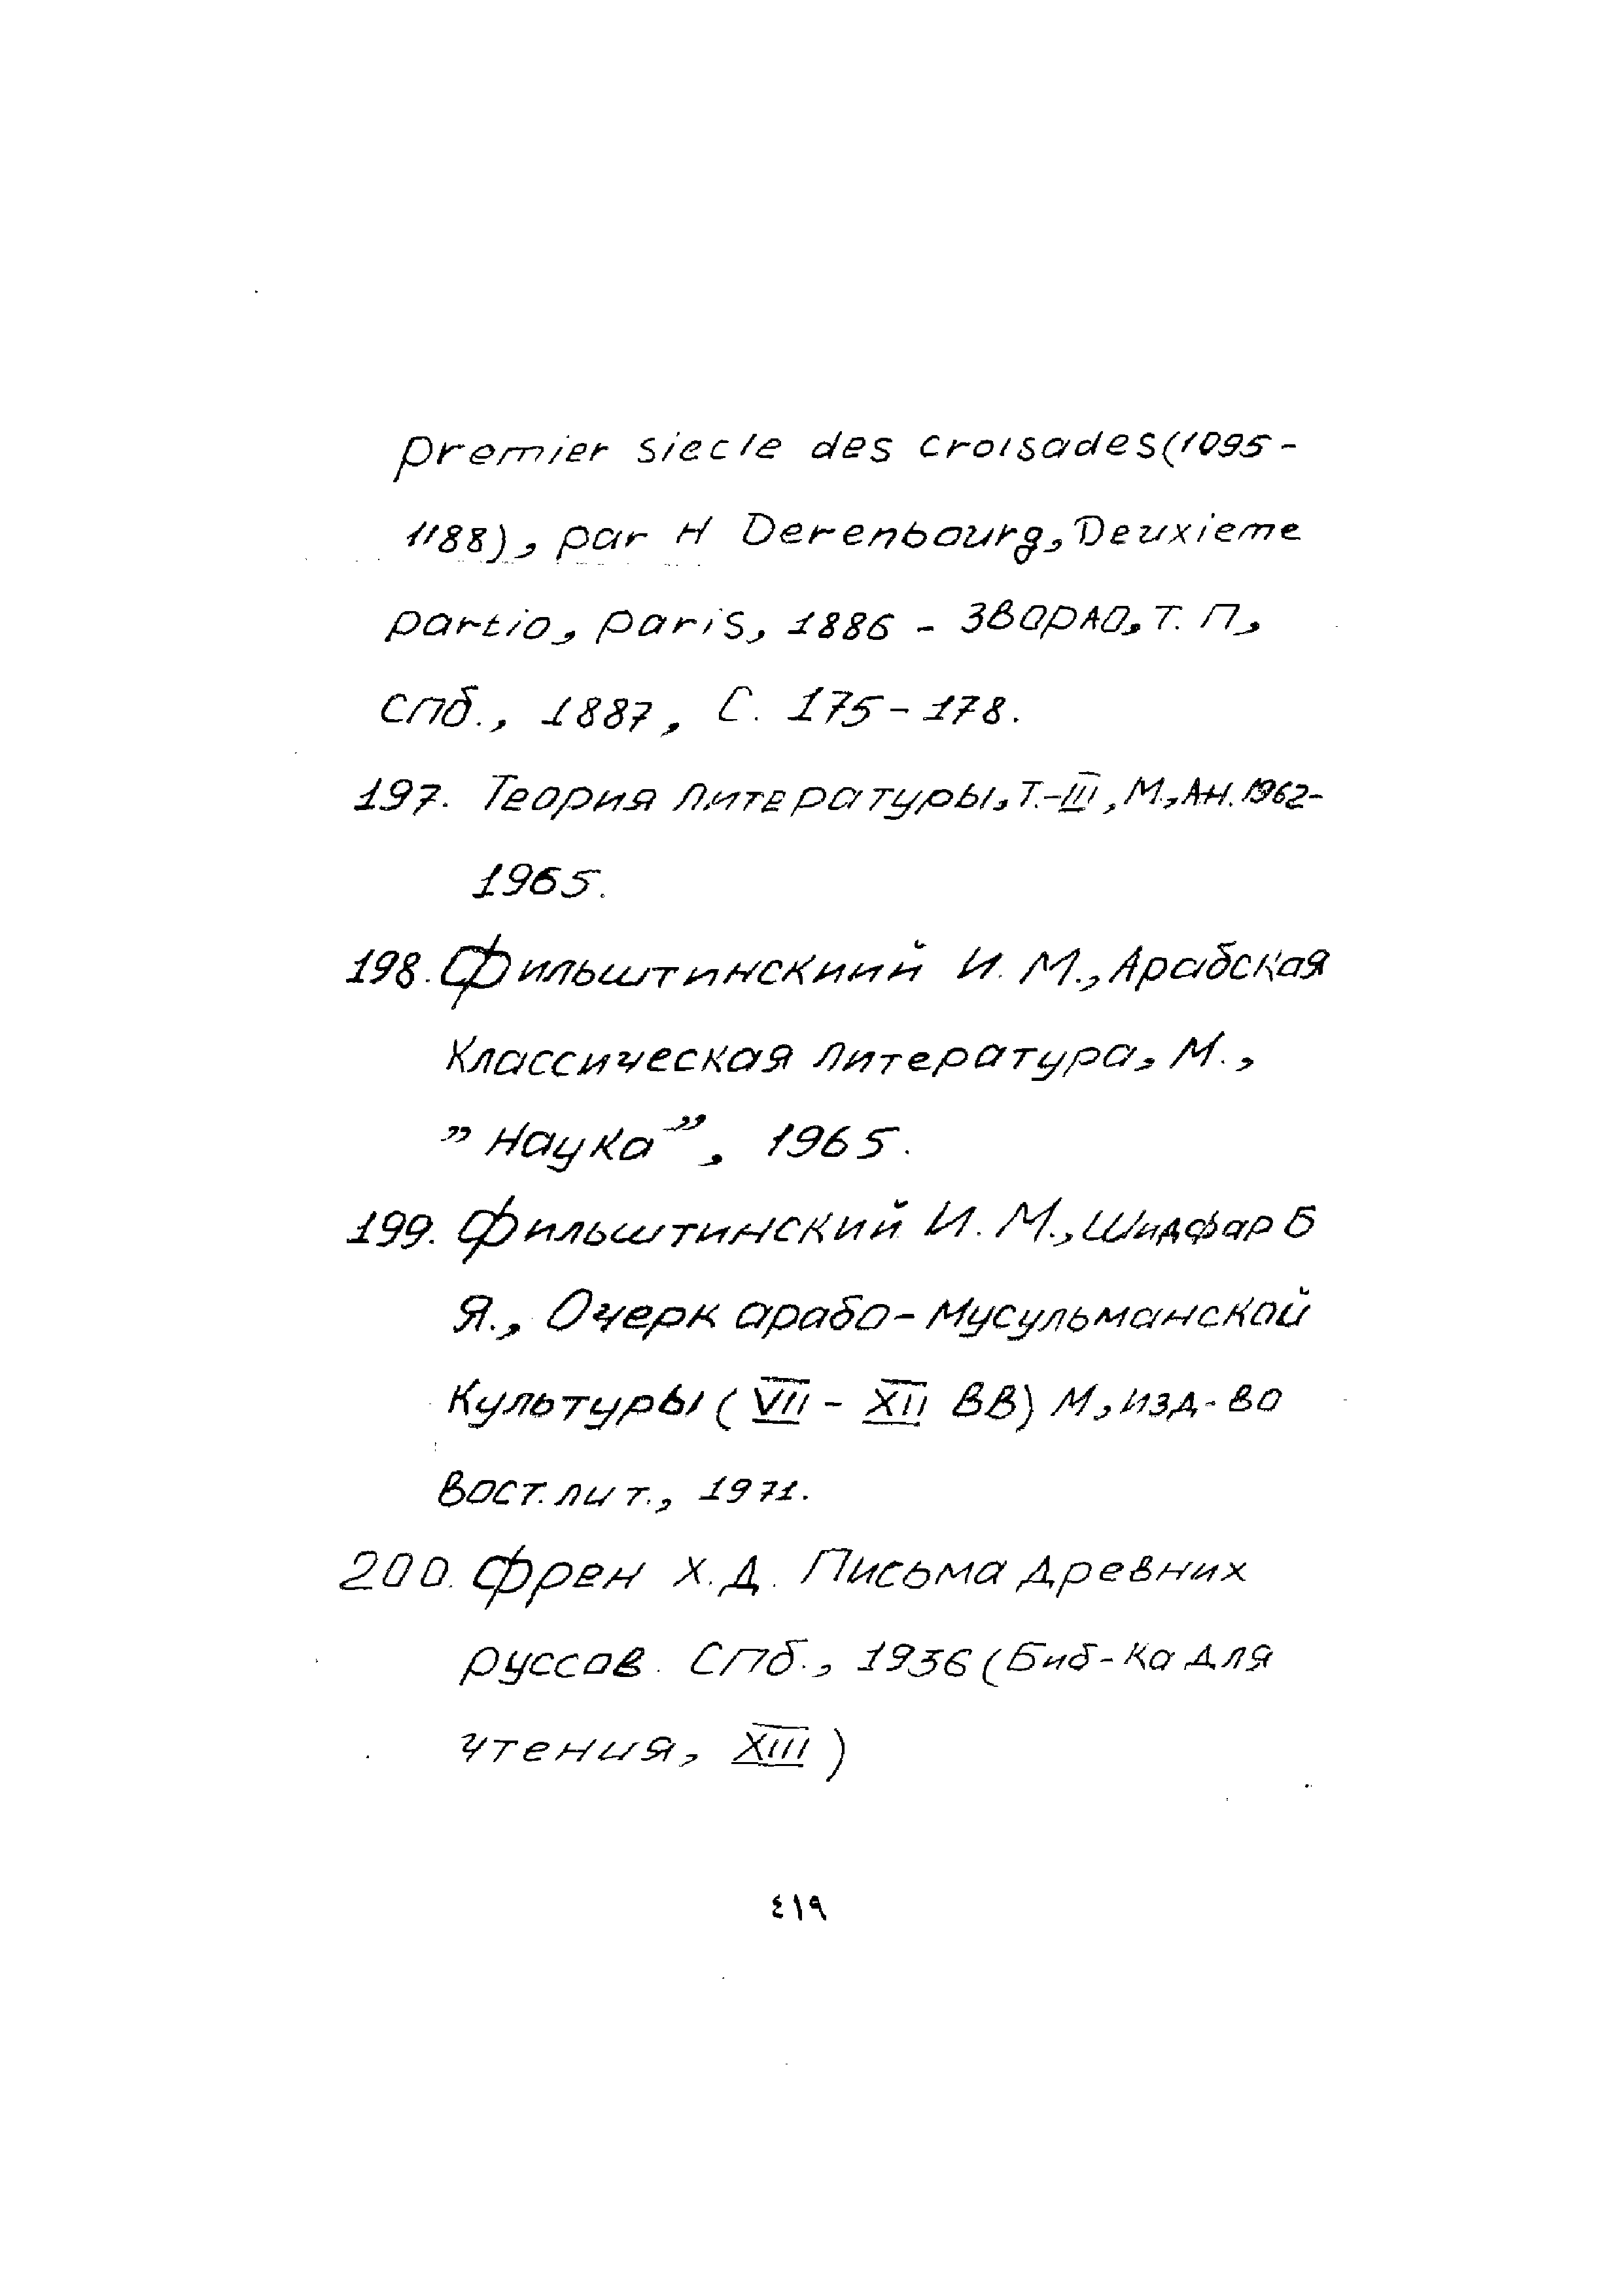 premier siecle des croisades(1095-
1188), par H Derenbourg, Deuxieme
partio, paris, 1886 - ЗВОРАО, Т. П,
СПб., 1887, С. 175-178.
197. Теория литературы, Т.-III, М., АН. 1962-
1965.
198. Фильштинскиий И. М., Арабская
Классическая литература, М.,
" Наука", 1965.
199. Фильштинский И. М., Шидфар Б
Я., Очерк арабо-Мусульманской
Культуры (VII - XII ВВ) М, изд-во
Вост. лит., 1971.
200. Френ Х. Д. Письма древних
руссов. СПб., 1936 (Биб-ка для
чтения, XIII)
٤١٩